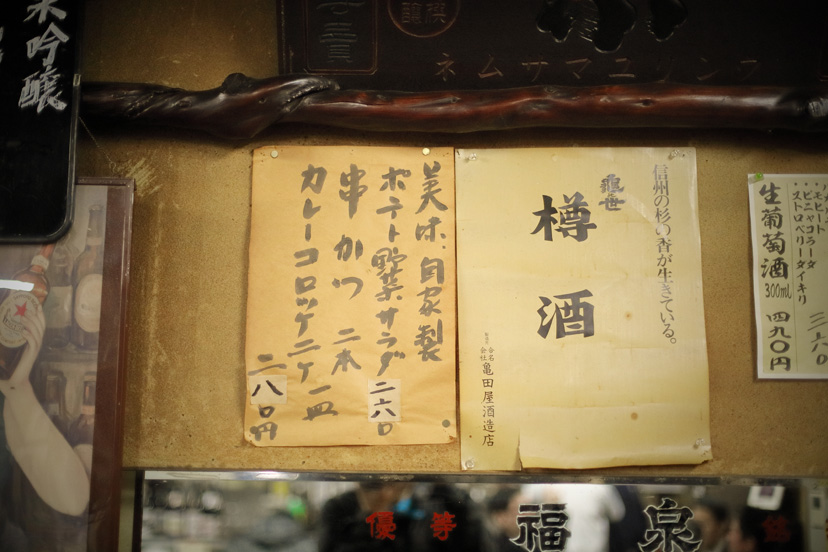 米吟醸
ネムサマユリンフ
美味自家製
ポテト野菜サラダ 二六〇
串かつ 二本
カレーコロッケ二ケ 一皿
二八〇円
信州の杉の香が生きている。
亀の世
樽酒
合名会社 亀田屋酒造店
モヒート
ピニャコラーダ
ストロベリーダイキリ
三六〇
生葡萄酒 300ml 四九〇円
優等
福泉